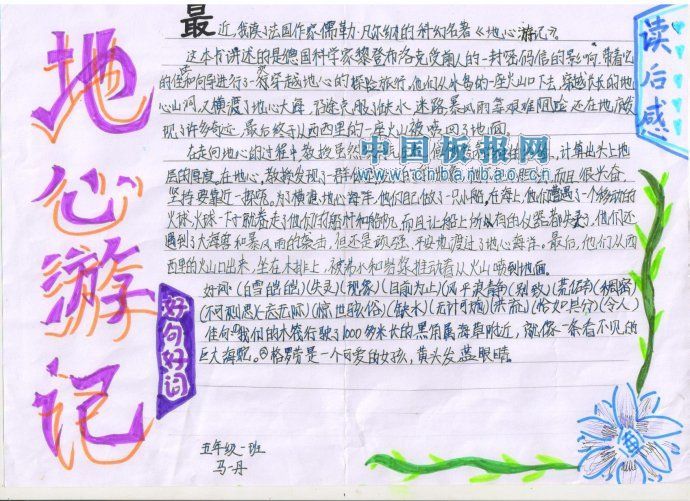 地心游记
读后感
最近,我读了法国作家儒勒·凡尔纳的科幻名著《地心游记》。
这本书讲述的是德国科学家黎登布洛克受前人的一封密码信的影响,带着他
的侄和向导进行了一次穿越地心的探险旅行,他们从冰岛的一座火山口下去,穿越
心山洞,又横渡了地心大海,沿途克服了缺水、迷路、暴风雨等艰难困险,还在地
现了许多奇迹,最后终于从西西里的一座火山被喷回了地面。
在走向地心的过程中教授虽然 计算出头上地
层的厚度。在地心,教授发现了一群 而且很兴奋
坚持要靠近一部落。为了横 地心海洋,他们自己做了一只小船,在海上,他们遭遇了一个移动的
火球,火球一下就卷走了他们 船 和船帆,而且让船上所有的仪器都失灵,他们还
遇到了大海兽和暴风雨的袭击,但还是顽强、平安地渡过了地心海洋。最后,他们从西
西里的火山口出来,坐在木排上,被沸水和岩浆推动着从火山喷到地面。
中国板报网
www.cnbanbao.cn
好句好词
好词:(白雪皑皑)(失灵)(现象)(目前为止)(风平浪静)(别致)(稠密)
(不可思议)(惊世骇俗)(缺水)(无计可施)(洪流)(恰如其分)(令人)
佳句:①我们的木筏行驶了1000多米长的黑角属海草附近,就像一条看不见的
巨大海蛇。②格劳蓓是一个可爱的女孩,黄头发蓝眼睛。
五年级一班
马丹